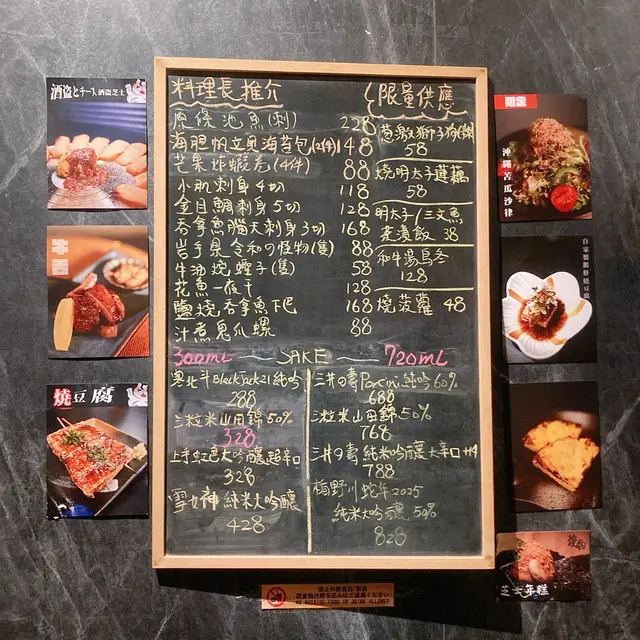 料理長推介
原條池魚(刺) 228
海胆帆立貝海苔包(2件) 148
芒果炸蝦卷(4件) 88
小肌刺身 4切 118
金目鯛刺身 5切 128
吞拿魚腦天刺身 3切 168
岩手県令和の怪物(隻) 88
牛油燒蟶子(隻) 58
花魚一夜干 128
鹽燒吞拿魚下巴 168
汁煮鬼爪螺 88
限量供應
58
燒明太子蓮藕
58
明太子/三文魚
茶漬飯 38
和牛湯烏冬
128
燒菠蘿 48
300mL SAKE 720mL
寒北斗 Black Jack 21 純吟
288
三粒米山田錦 50%
328
上手虹色大吟釀超辛口
328
雪女神 純米大吟釀
428
三井の壽 Porcini 純吟 60%
688
三粒米山田錦 50%
768
三井の壽 純米吟釀 大辛口+14
788
梅野川 蛇年2025
純米大吟釀 50%
828
酒盗とチーズ 酒盗芝士
牛舌
燒豆腐
限定
沖繩苦瓜沙律
燒物
芝士年糕
NO OUTSIDE FOOD OR DRINK ALLOWED